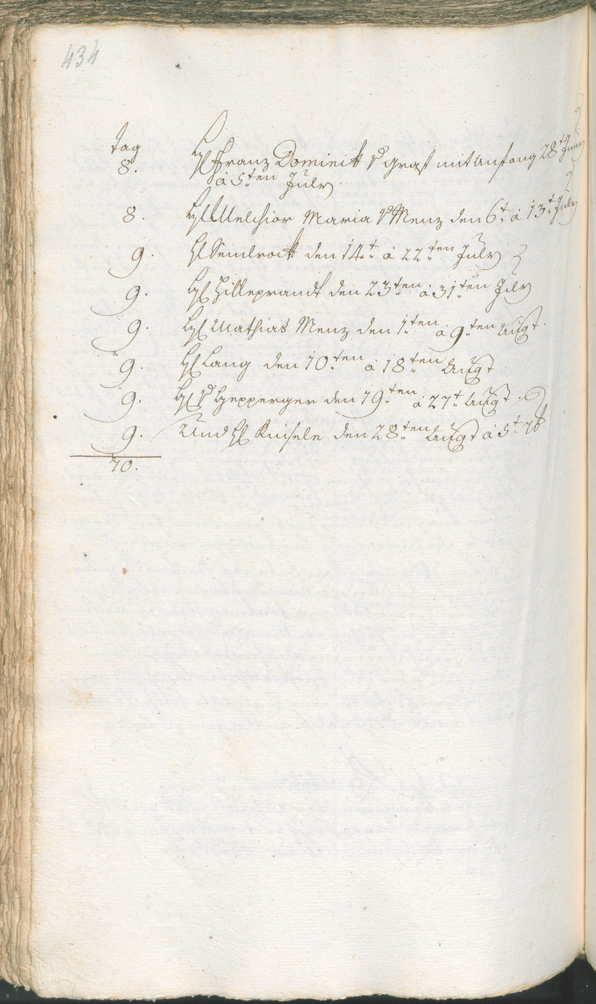 434
tag
8. H Franz Dominick v Graff mit anfang 28t Juny
a 5ten July
8. H Melchior Maria v Menz den 6t a 13t July
9. H den 14t a 22ten July
9. H Hilleprandt den 23ten a 31ten July
9. H Mathias Menz den 1ten a 9ten Augt.
9. H Lang den 10ten a 18ten Augt
9. H v Hepperger den 19ten a 27t Augt.
9. Und H den 28ten Augt a 5t 7b
70.